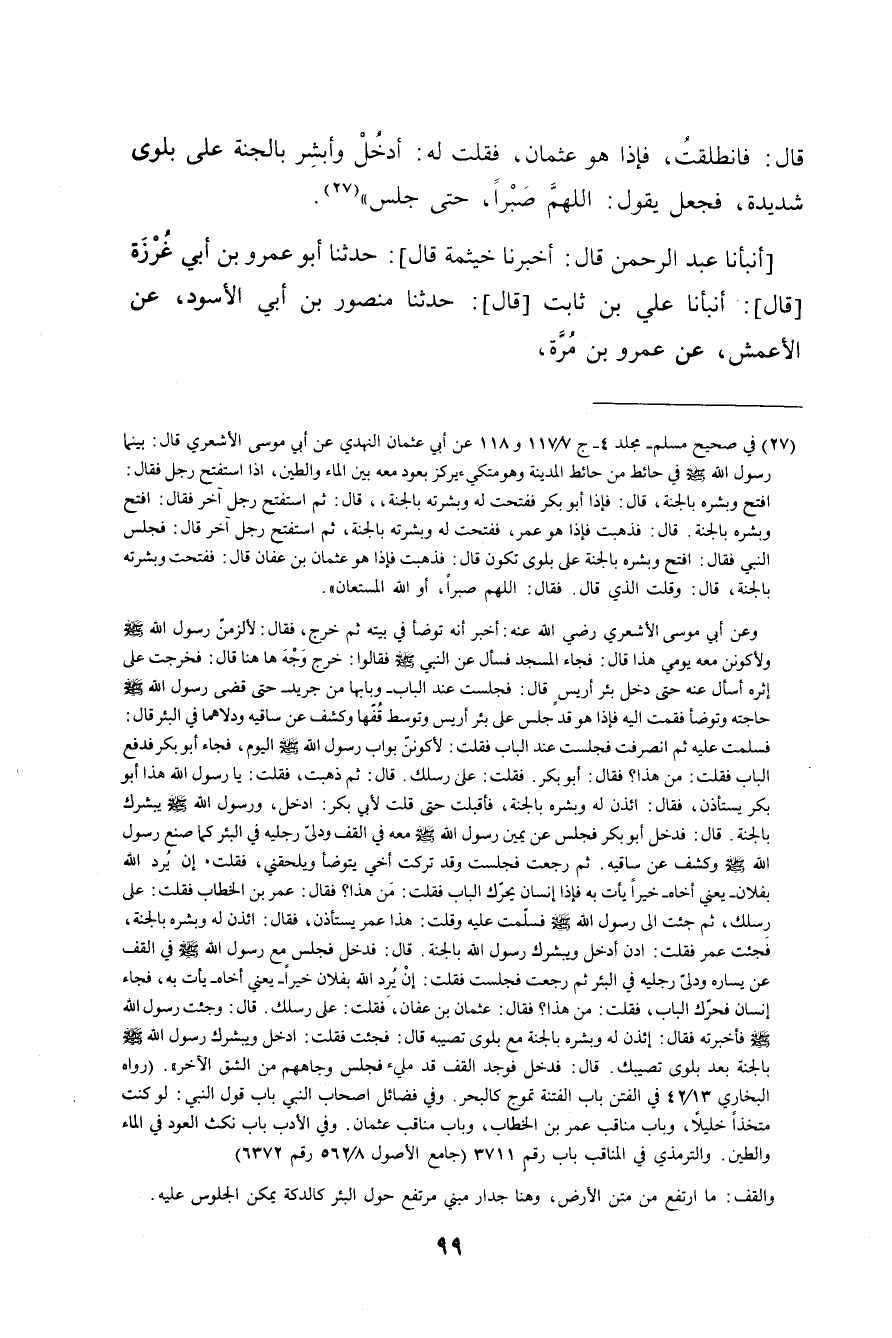 قال: فانطلقتُ، فإذا هو عثمان، فقلت له: أدخُلْ وأبشِر بالجنة على بلوى
شديدة، فجعل يقول: اللهمَّ صَبْراً، حتى جلس»(٢٧).
[أنبأنا عبد الرحمن قال: أخبرنا خيثمة قال]: حدثنا أبو عمرو بن أبي غُرْزَة
[قال]: أنبأنا علي بن ثابت [قال]: حدثنا منصور بن أبي الأسود، عن
الأعمش، عن عمرو بن مُرَّة،
(٢٧) في صحيح مسلم ـ مجلد ٤ ـ ج ١١٧/٧ و ١١٨ عن أبي عثمان النهدي عن أبي موسى الأشعري قال: بينما
رسول الله ﷺ في حائط من حائط المدينة وهو متكيء يركز بعود معه بين الماء والطين، اذا استفتح رجل فقال:
افتح وبشره بالجنة، قال: فإذا أبو بكر ففتحت له وبشرته بالجنة،، قال: ثم استفتح رجل آخر فقال: افتح
وبشره بالجنة. قال: فذهبت فإذا هو عمر، ففتحت له وبشرته بالجنة، ثم استفتح رجل آخر قال: فجلس
النبي فقال: افتح وبشره بالجنة على بلوى تكون قال: فذهبت فإذا هو عثمان بن عفان قال: ففتحت وبشرته
بالجنة، قال: وقلت الذي قال. فقال: اللهم صبراً، أو الله المستعان».
وعن أبي موسى الأشعري رضي الله عنه: أخبر أنه توضأ في بيته ثم خرج، فقال: لألزمنّ رسول الله ﷺ
ولأكونن معه يومي هذا قال: فجاء المسجد فسأل عن النبي ﷺ فقالوا: خرج وَجْهَ ها هنا قال: فخرجت على
إثره أسأل عنه حتى دخل بئر أريسٍ قال: فجلست عند الباب ـ وبابها من جريد ـ حتى قضى رسول الله ﷺ
حاجته وتوضأ فقمت اليه فإذا هو قد جلس على بئر أريس وتوسط قُفّها وكشف عن ساقيه ودلاهما في البئر قال:
فسلمت عليه ثم انصرفت فجلست عند الباب فقلت: لأكوننّ بواب رسول الله ﷺ اليوم، فجاء أبو بكر فدفع
الباب فقلت: من هذا؟ فقال: أبو بكر. فقلت: على رسلك. قال: ثم ذهبت، فقلت: يا رسول الله هذا أبو
بكر يستأذن، فقال: ائذن له وبشره بالجنة، فأقبلت حتى قلت لأبي بكر: ادخل، ورسول الله ﷺ يبشرك
بالجنة. قال: فدخل أبو بكر فجلس عن يمين رسول الله ﷺ معه في القف ودلىّ رجليه في البئر كما صنع رسول
الله ﷺ وكشف عن ساقيه. ثم رجعت فجلست وقد تركت أخي يتوضأ ويلحقني، فقلت٠ إن يُرد الله
بفلان ـ يعني أخاه ـ خيراً يأت به فإذا إنسان يحرّك الباب فقلت: مَن هذا؟ فقال: عمر بن الخطاب فقلت: على
رسلك، ثم جئت الى رسول الله ﷺ فسلّمت عليه وقلت: هذا عمر يستأذن، فقال: ائذن له وبشره بالجنة،
فجئت عمر فقلت: ادن أدخل ويبشرك رسول الله بالجنة. قال: فدخل فجلس مع رسول الله ﷺ في القف
عن يساره ودلىّ رجليه في البئر ثم رجعت فجلست فقلت: إنْ يُرد الله بفلان خيراً ـ يعني أخاه ـ يأت به، فجاء
إنسان فحرّك الباب، فقلت: من هذا؟ فقال: عثمان بن عفان، فقلت: على رسلك. قال: وجئت رسول الله
ﷺ فأخبرته فقال: إئذن له وبشره بالجنة مع بلوى تصيبه قال: فجئت فقلت: ادخل ويبشرك رسول الله ﷺ
بالجنة بعد بلوى تصيبك. قال: فدخل فوجد القف قد مليء فجلس وجاههم من الشق الآخر». (رواه
البخاري ٤٢/١٣ في الفتن باب الفتنة تموج كالبحر. وفي فضائل اصحاب النبي باب قول النبي: لو كنت
متخذاً خليلًا، وباب مناقب عمر بن الخطاب، وباب مناقب عثمان. وفي الأدب باب نكث العود في الماء
والطين. والترمذي في المناقب باب رقم ٣٧١١ (جامع الأصول ٥٦٢/٨ رقم ٦٣٧٢)
والقف: ما ارتفع من متن الأرض، وهنا جدار مبني مرتفع حول البئر كالدكة يمكن الجلوس عليه.
٩٩